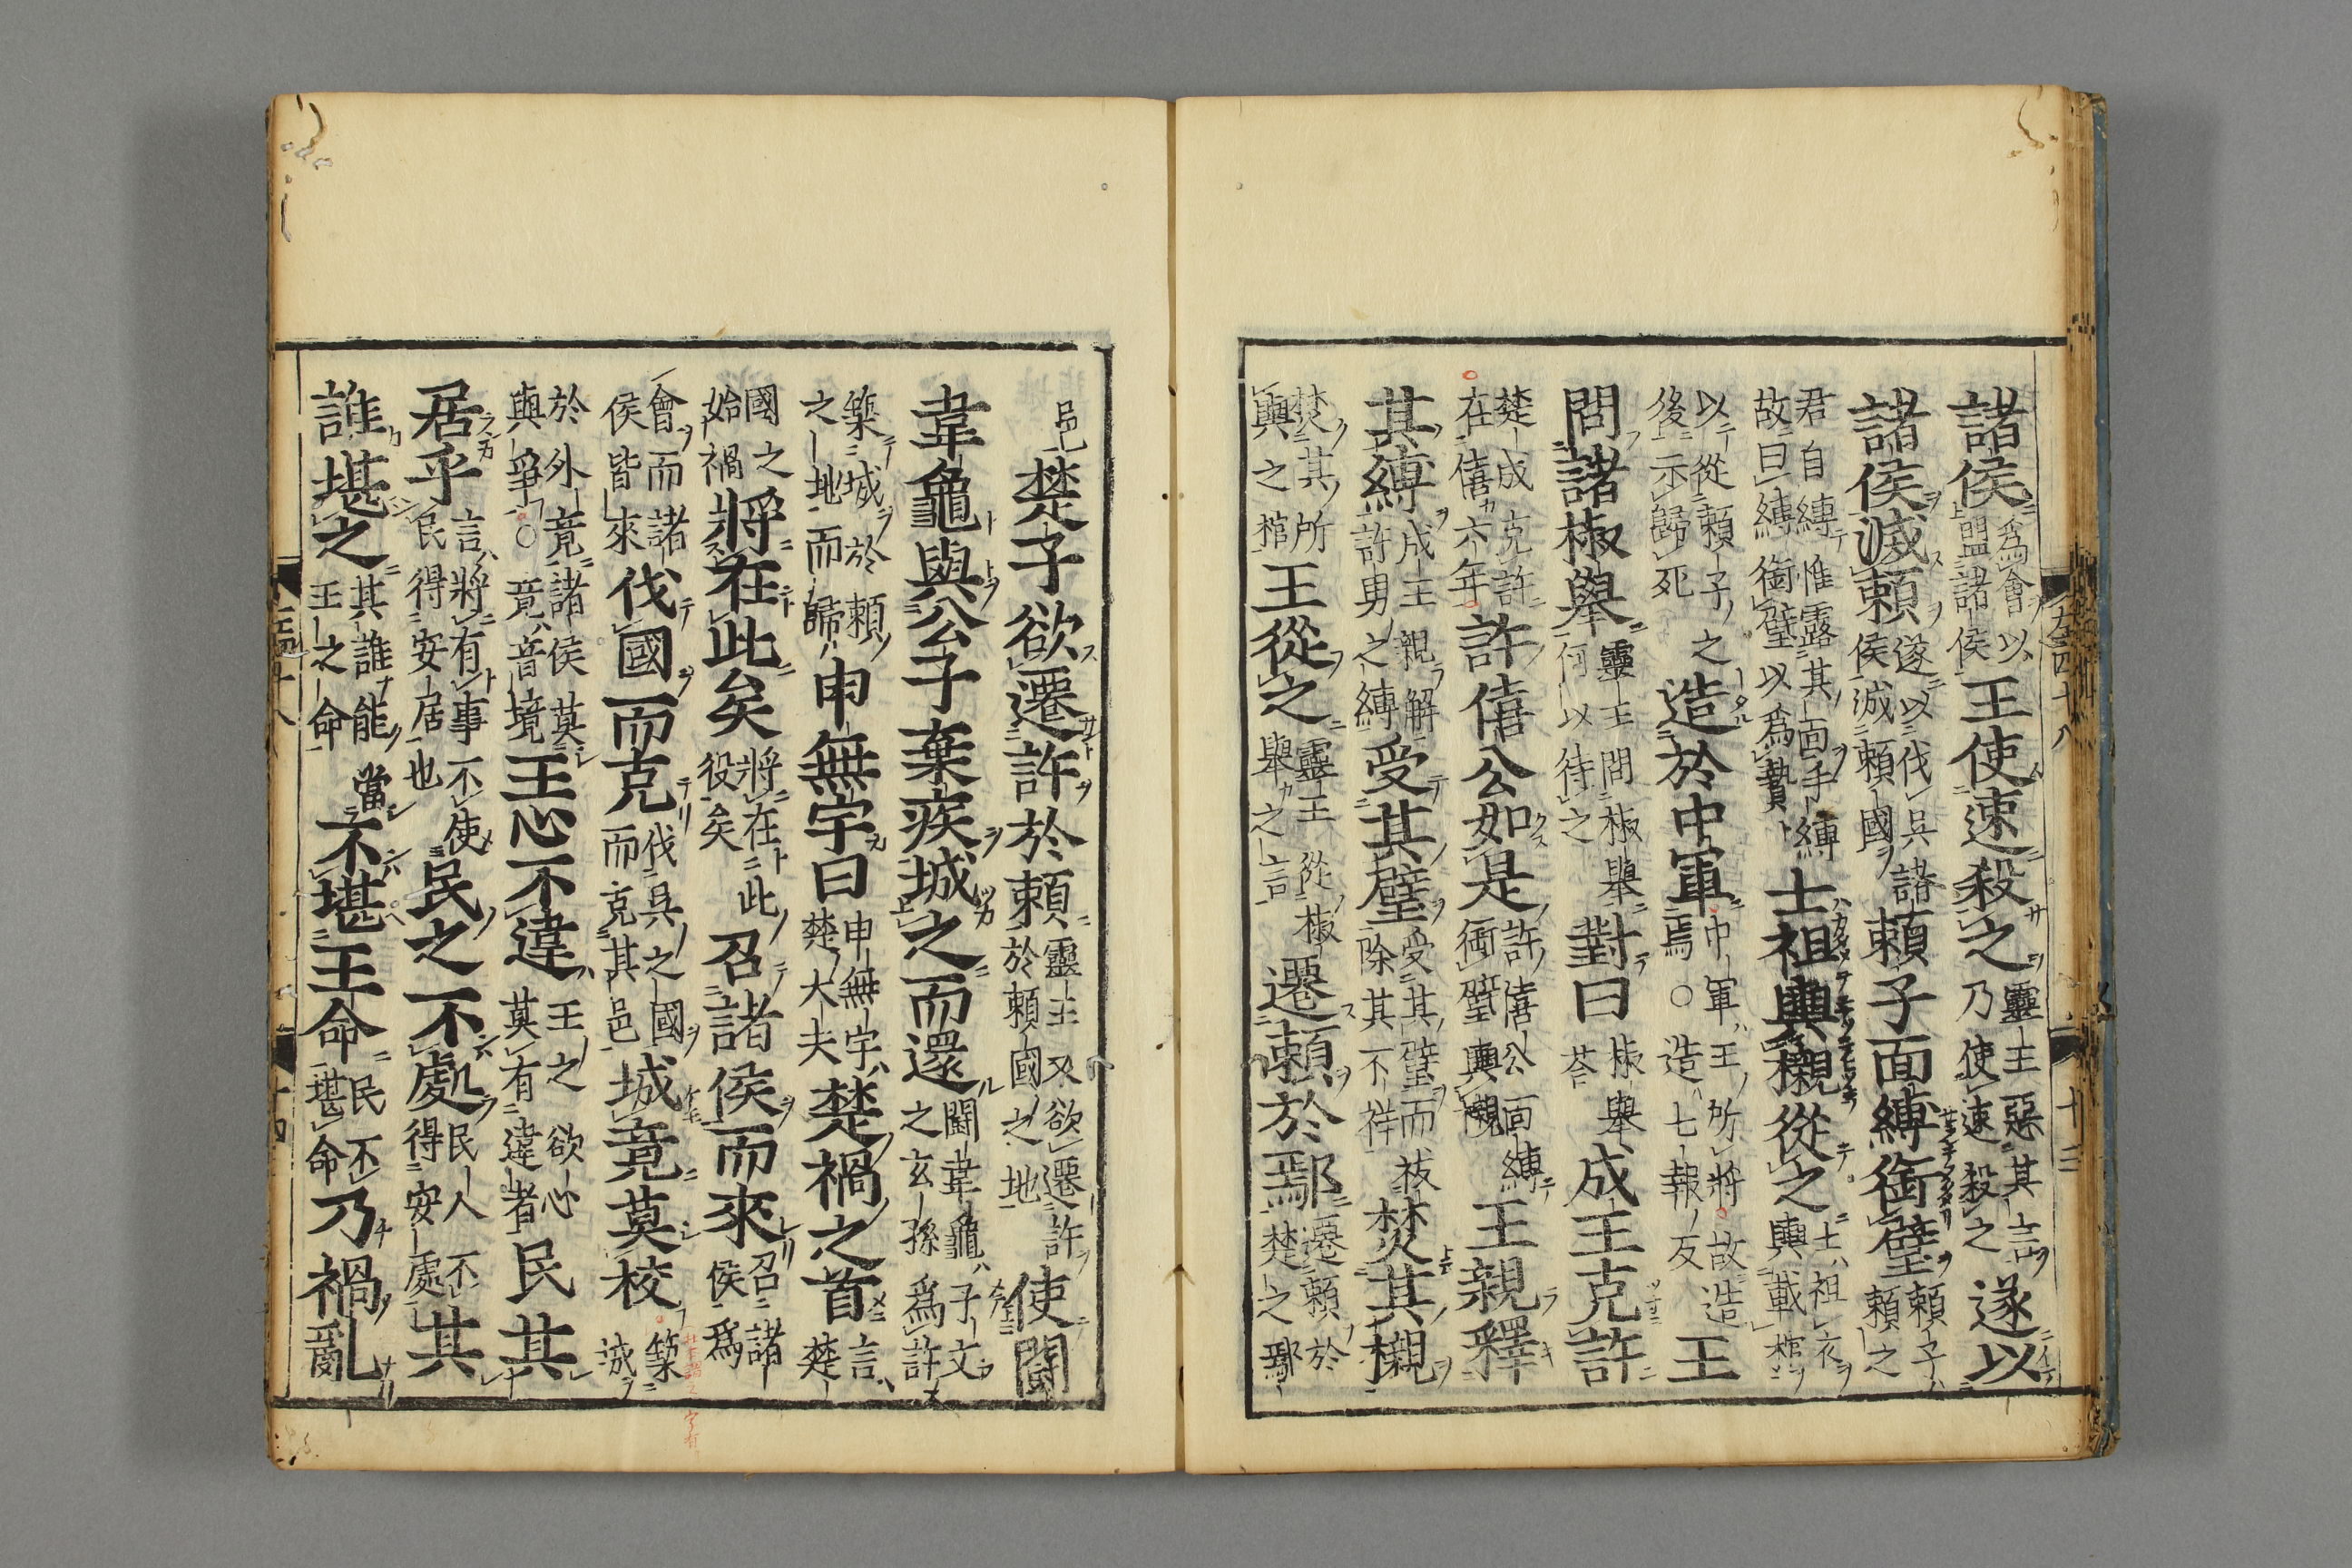 諸侯為會以盟諸侯王使速殺之靈王惡其言乃使速殺之遂以
諸侯滅頼遂以伐呉諸侯滅頼國頼子面縛銜璧頼子頼之
君自縛惟露其面手縛故曰縛銜璧以為贄士祖輿櫬從之士祖衣輿載棺
以從頼子之後示歸死造於中軍中軍王所將故造焉○造七報反王
問諸椒舉靈王問椒舉何以待之對曰椒舉荅成王克許
楚成克許在僖六年許僖公如是許僖公面縛銜璧輿櫬王親釋
其縛成王親解許男之縛受其璧受其璧而祓除其不祥焚其櫬
焚其所輿之棺王從之靈王從椒舉之言遷頼於鄢遷頼於楚之鄢
邑楚子欲遷許於頼靈王又欲遷許於頼國之地使鬭
韋龜與公子棄疾城之而還鬭韋龜子文之玄孫為許
築城於頼之地而歸申無宇曰申無宇楚大夫楚禍之首言楚
國之始禍將在此矣將在此役矣召諸侯而來召諸侯為
會而諸侯皆來伐國而克伐呉之國而克其邑城竟莫校築城
於外竟諸侯莫與爭○竟音境王心不違王之欲心莫有違者民其
居乎言將有事不使民得安居也民之不處民人不得安處其
誰堪之其誰能當王之命不堪王命民不堪命乃禍亂